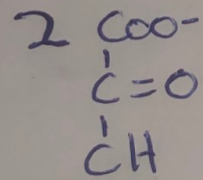 2 COO-
C=O
CH